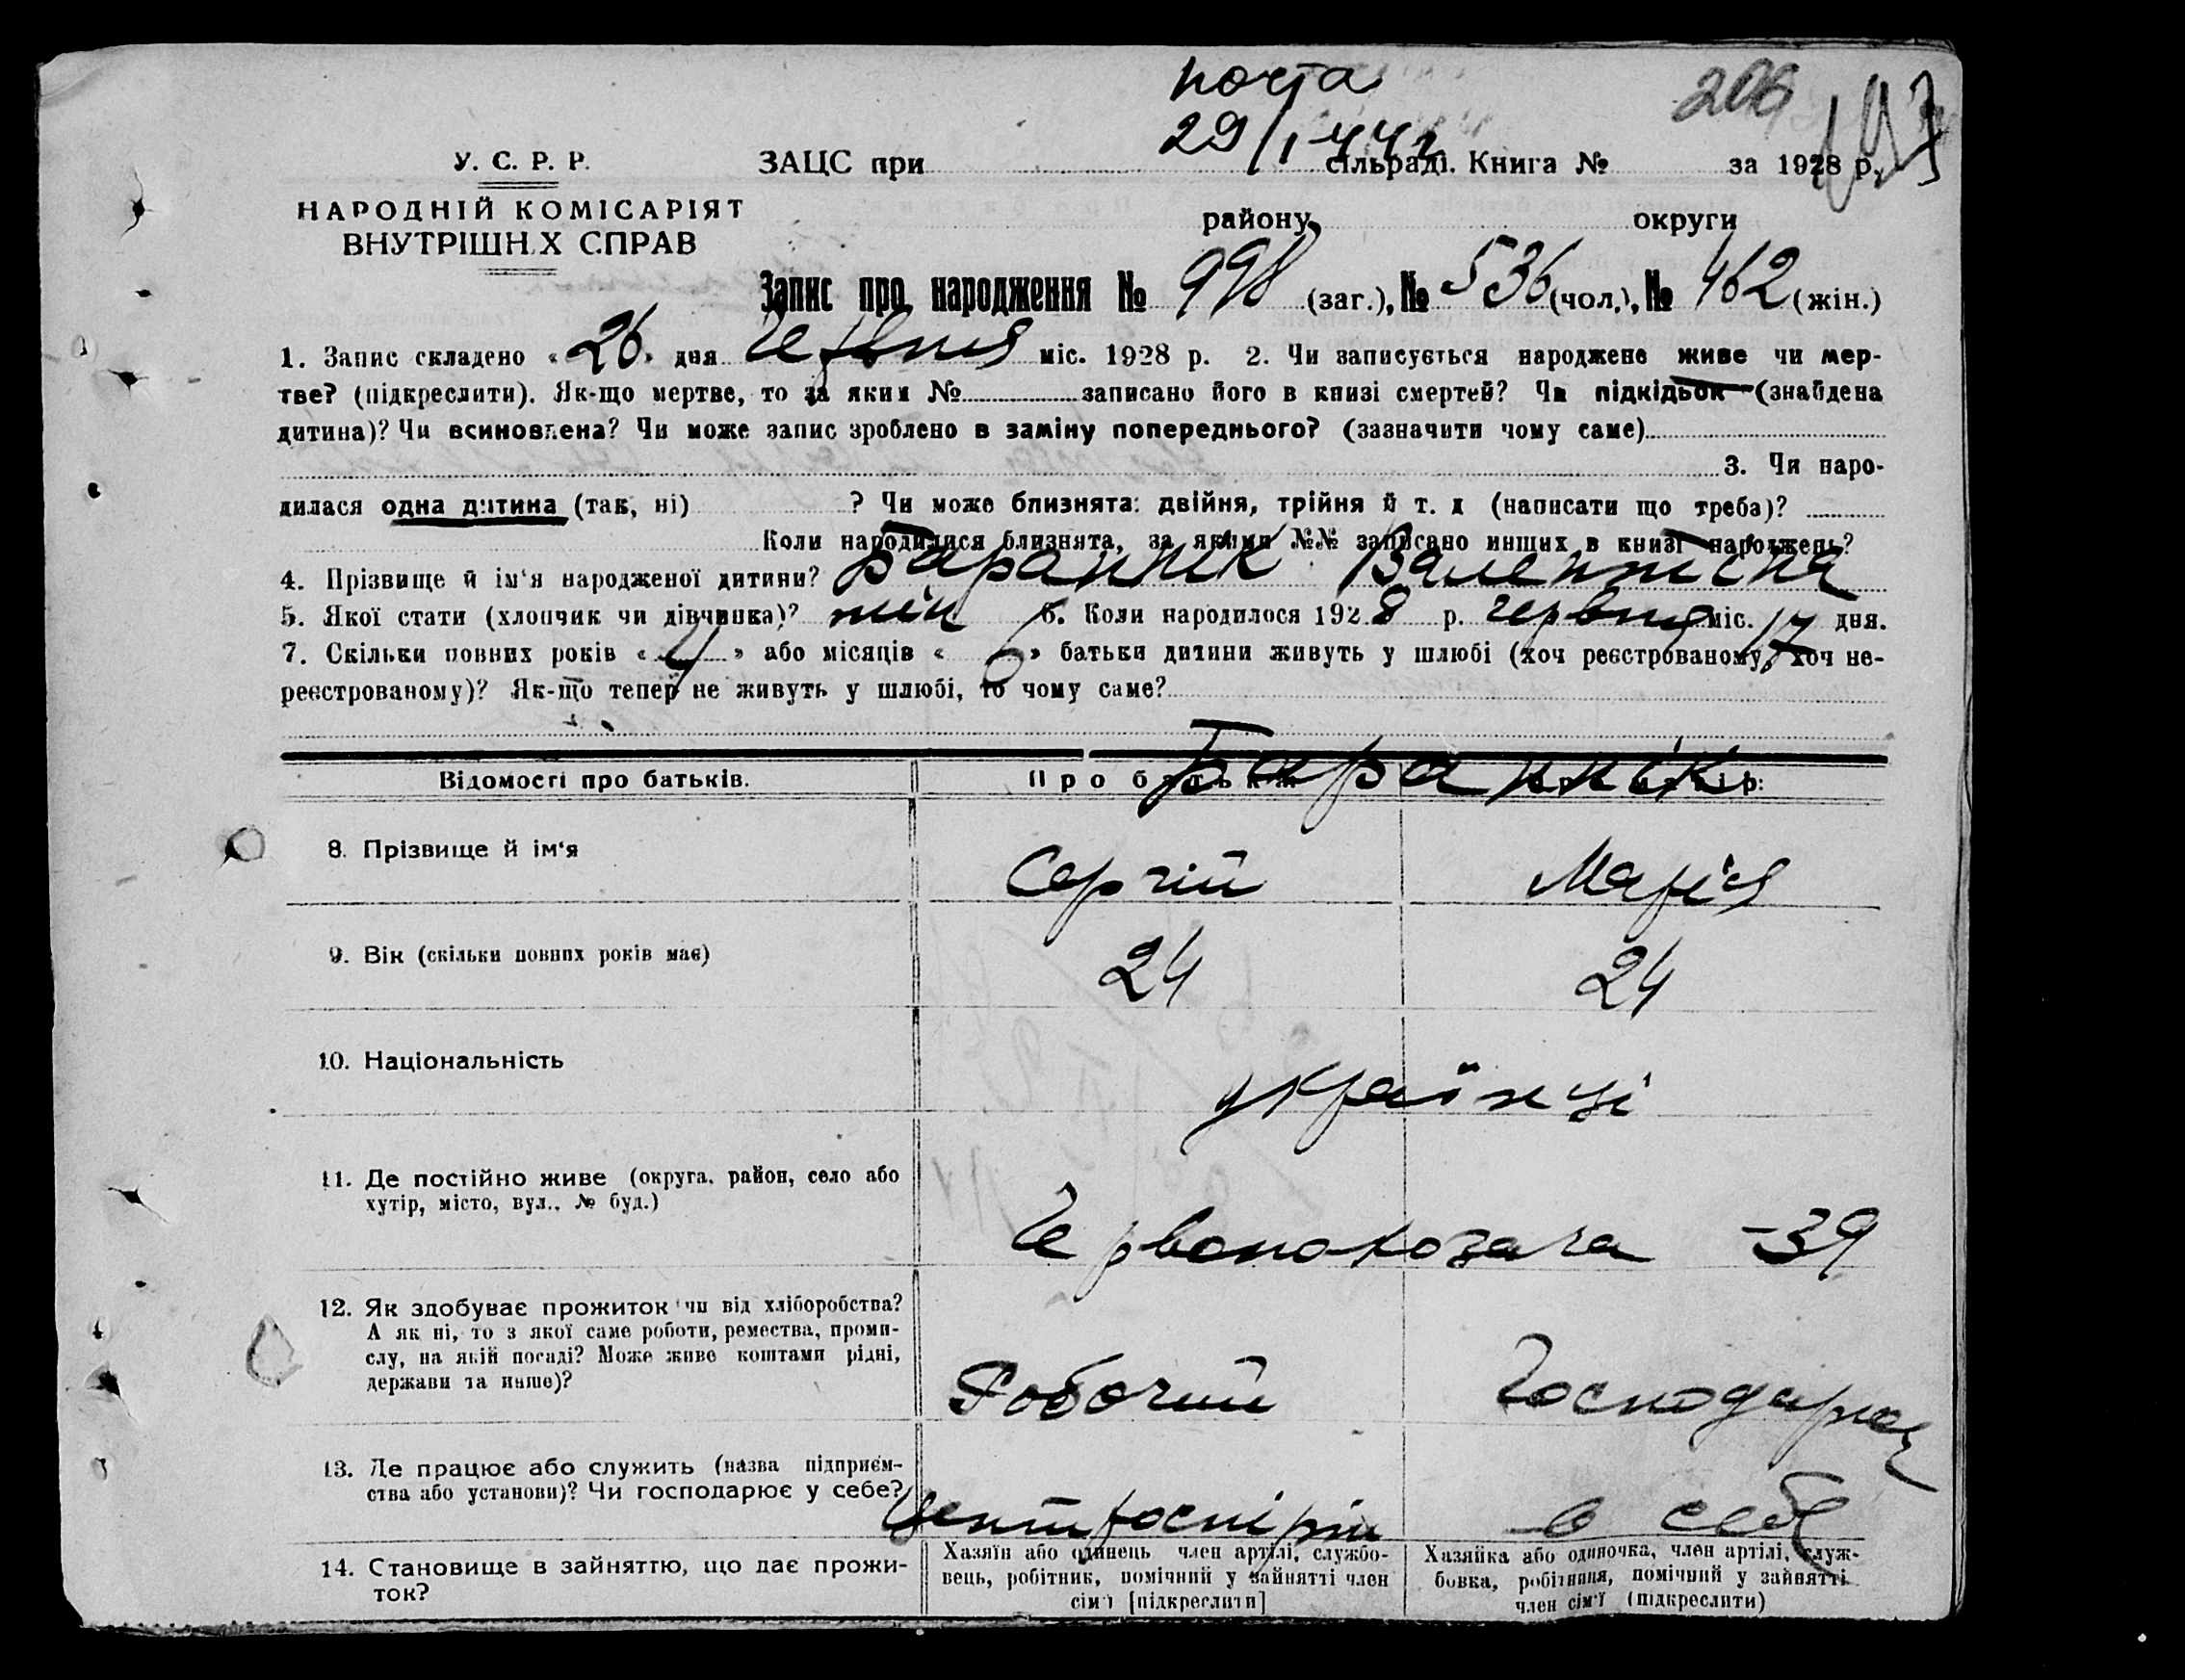 почта
206
29/I 44 г
У. С. Р. Р.
ЗАЦС при сільраді. Книга № за 1928 р.
НАРОДНІЙ КОМІСАРІЯТ
ВНУТРІШН.Х СПРАВ
району округи
Запис про народження № 998 (заг.), № 536 (чол.), № 462 (жін.)
1. Запис складено «26» дня Червня міс. 1928 р. 2. Чи записується народжене живе чи мер-
тве? (підкреслити). Як-що мертве, то за яким № записано його в книзі смертей? Чи підкідьок (знайдена
дитина)? Чи всиновлена? Чи може запис зроблено в заміну попереднього? (зазначити чому саме)
3. Чи наро-
дилася одна дитина (так, ні) ? Чи може близнята: двійня, трійня й т. д (написати що треба)?
Коли народилися близнята, за якими №№ записано инших в книзі народжень?
4. Прізвище й ім'я народженої дитини? Баранник Валентина
5. Якої стати (хлопчик чи дівчинка)? жін 6. Коли народилося 1928 р. червня міс. 17 дня.
7. Скільки повних років «4» або місяців « 6 » батьки дитини живуть у шлюбі (хоч реєстрованому, хоч не-
реєстрованому)? Як-що тепер не живуть у шлюбі, то чому саме?
Відомості про батьків. Про батька Баранник
8. Прізвище й ім'я Сергій Марія
9. Вік (скільки повних років має) 24 24
10. Національність українці
11. Де постійно живе (округа, район, село або
хутір, місто, вул., № буд.)
Червонокозача -39
12. Як здобуває прожиток чи від хліборобства?
А як ні, то з якої саме роботи, ремества, проми-
слу, на якій посаді? Може живе коштами рідні,
держави та инше)?
Робочий Господарка
13. Де працює або служить (назва підприєм-
ства або установи)? Чи господарює у себе?
Центроспірт в себе
14. Становище в зайняттю, що дає прожи-
ток?
Хазяїн або одинець член артілі, службо-
вець, робітник, помічний у зайнятті член
сім'ї [підкреслити]
Хазяйка або одиночка, член артілі, служ-
бовка, робітниця, помічний у зайнятті
член сім'ї (підкреслити)